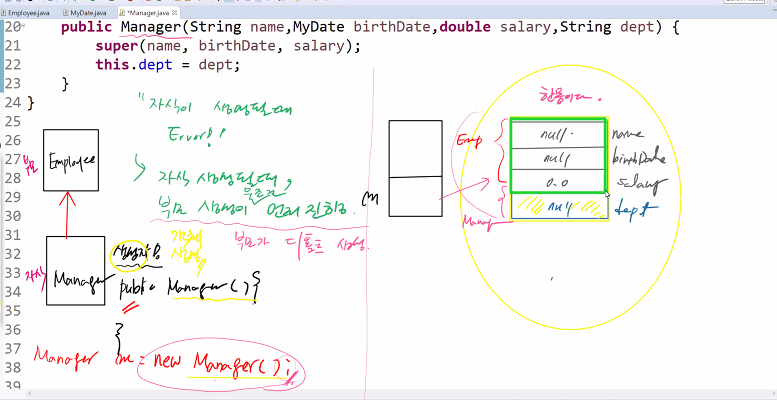 Employee.java
MyDate.java
*Manager.java
20 public Manager(String name,MyDate birthDate,double salary,String dept) {
21 super(name, birthDate, salary);
22 this.dept = dept;
23 }
24 }
25
26
27
28
29
30
31
32
33
34
35
36
37
38
39
"자식이 생성될때
Error!!
자식 생성될때,
부모 생성이 먼저 진행됨.
부모가 디폴트 생성.
부모
Employee
자식
Manager
생성자
public Manager(){
}
Manager m = new Manager();
한몸이다.
Emp
null
name
null
birthDate
0.0
salary
Manager
null
dept
m